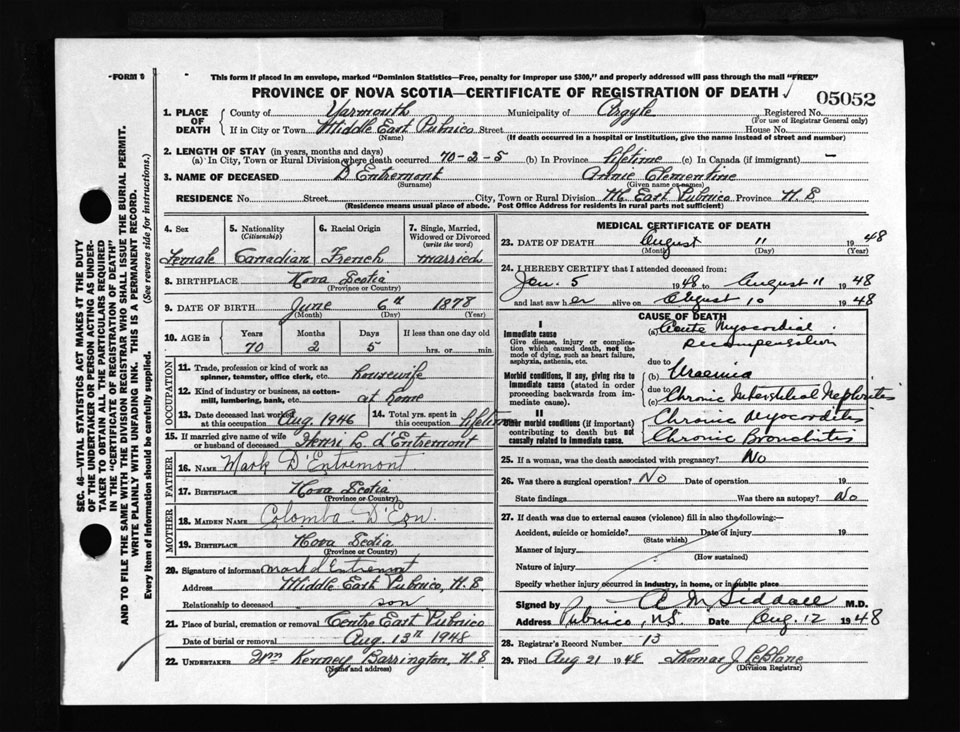 FORM 8
This form if placed in an envelope, marked "Dominion Statistics—Free, penalty for improper use $300," and properly addressed will pass through the mail "FREE"
PROVINCE OF NOVA SCOTIA—CERTIFICATE OF REGISTRATION OF DEATH
05052
1. PLACE OF DEATH
County of Yarmouth Municipality of Argyle Registered No.
(For use of Registrar General only)
If in City or Town Middle East Pubnico Street House No.
(Name) (If death occurred in a hospital or institution, give the name instead of street and number)
2. LENGTH OF STAY (in years, months and days)
(a) In City, Town or Rural Division where death occurred 70-2-5 (b) In Province lifetime (c) In Canada (if immigrant) —
3. NAME OF DECEASED D'Entremont Annie Clementine
(Surname) (Given name or names)
RESIDENCE No. Street City, Town or Rural Division M. East Pubnico Province N.S.
(Residence means usual place of abode. Post Office Address for residents in rural parts not sufficient)
4. Sex
Female
5. Nationality (Citizenship)
Canadian
6. Racial Origin
French
7. Single, Married, Widowed or Divorced (write the word)
married
8. BIRTHPLACE Nova Scotia
(Province or Country)
9. DATE OF BIRTH June 6th 1878
(Month) (Day) (Year)
10. AGE in Years Months Days If less than one day old
70 2 5 hrs. or min.
OCCUPATION
11. Trade, profession or kind of work as spinner, teamster, office clerk, etc. housewife
12. Kind of industry or business, as cotton-mill, lumbering, bank, etc. at home
13. Date deceased last worked at this occupation Aug. 1946
14. Total yrs. spent in this occupation lifetime
15. If married give name of wife or husband of deceased Henri L d'Entremont
FATHER
16. NAME Mark D'Entremont
17. BIRTHPLACE Nova Scotia
(Province or Country)
MOTHER
18. MAIDEN NAME Colomba D'Eon
19. BIRTHPLACE Nova Scotia
(Province or Country)
20. Signature of informant Mark d'Entremont
Address Middle East Pubnico, N.S.
Relationship to deceased son
21. Place of burial, cremation or removal Centre East Pubnico
Date of burial or removal Aug. 13th 1948
22. UNDERTAKER Wm Kenney Barrington, N.S.
(Name and address)
MEDICAL CERTIFICATE OF DEATH
23. DATE OF DEATH August 11 1948
(Month) (Day) (Year)
24. I HEREBY CERTIFY that I attended deceased from:
Jan. 5 1948 to August 11 1948
and last saw her alive on August 10 1948
CAUSE OF DEATH
I
Immediate cause
Give disease, injury or complication which caused death, not the mode of dying, such as heart failure, asphyxia, asthenia, etc.
(a) Acute Myocardial decompensation
due to
Morbid conditions, if any, giving rise to immediate cause (stated in order proceeding backwards from immediate cause).
(b) Uraemia
due to
(c) Chronic Interstitial Nephritis
II
Other morbid conditions (if important) contributing to death but not causally related to immediate cause.
Chronic Myocarditis
Chronic Bronchitis
25. If a woman, was the death associated with pregnancy? No
26. Was there a surgical operation? No Date of operation 19
State findings Was there an autopsy? No
27. If death was due to external causes (violence) fill in also the following:—
Accident, suicide or homicide? Date of injury 19
(State which)
Manner of injury
(How sustained)
Nature of injury
Specify whether injury occurred in industry, in home, or in public place
Signed by A. M. Siddall M.D.
Address Pubnico, NS Date Aug. 12 1948
28. Registrar's Record Number 13
29. Filed Aug 21 1948 Thomas J LeBlanc
(Division Registrar)
SEC. 46—VITAL STATISTICS ACT MAKES IT THE DUTY
OF THE UNDERTAKER OR PERSON ACTING AS UNDER-
TAKER TO OBTAIN ALL THE PARTICULARS REQUIRED
IN THE "CERTIFICATE OF REGISTRATION OF DEATH"
AND TO FILE THE SAME WITH THE DIVISION REGISTRAR WHO SHALL ISSUE THE BURIAL PERMIT.
WRITE PLAINLY WITH UNFADING INK. THIS IS A PERMANENT RECORD.
Every item of information should be carefully supplied. (See reverse side for instructions.)